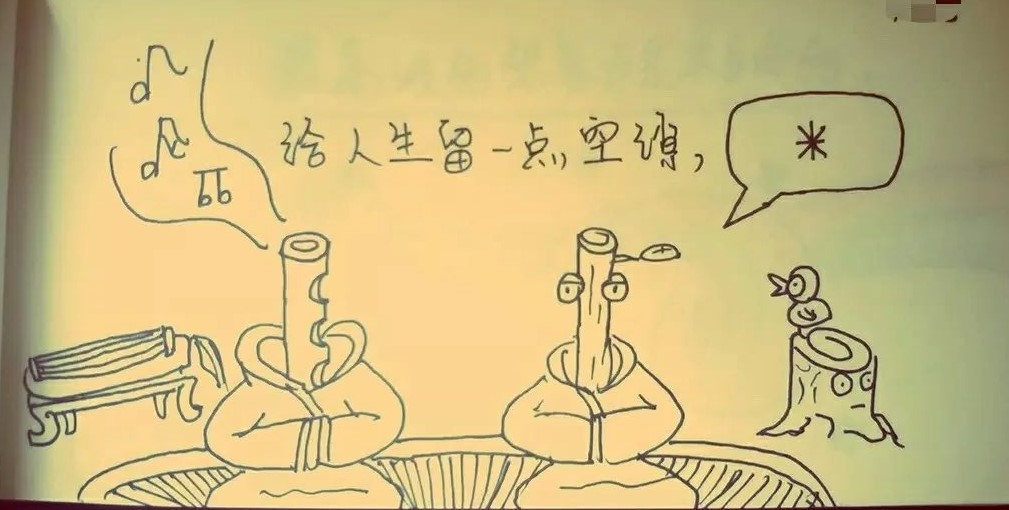 给人生留一点空隙,
*